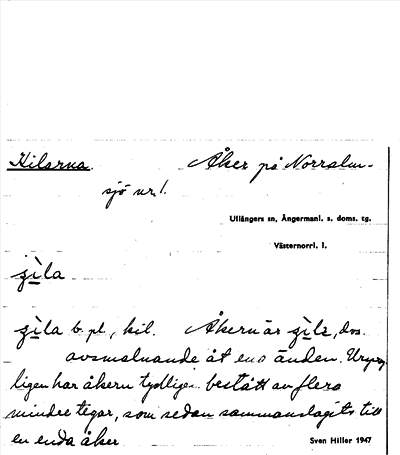 Kilarna. Åker på Norralm-
sjö nr 1.
Ullångers sn, Ångermanl. s. doms. tg.
Västernorrl. l.
ʒìla
ʒìla b. pl., kil. Åkern är ʒìlz, dvs.
avsmalnande åt ena änden. Ursprung
ligen har åkern tydligen bestått av flera
mindre tegar, som sedan sammanslagits till
en enda åker
Sven Hiller 1947